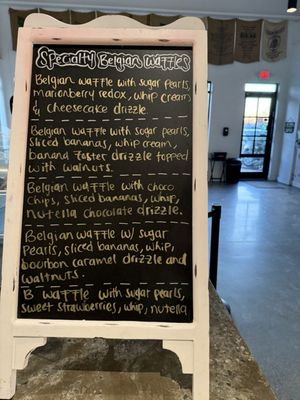 Specialty Belgian Waffles
Belgian waffle with sugar pearls,
marionberry redox, whip cream
& cheesecake drizzle.
Belgian waffle with sugar pearls,
sliced bananas, whip cream,
banana foster drizzle topped
with walnuts.
Belgian waffle with choco
chips, sliced bananas, whip,
nutella chocolate drizzle.
Belgian waffle w/ sugar
pearls, sliced bananas, whip,
bourbon caramel drizzle and
waltnuts.
B waffle with sugar pearls,
sweet strawberries, whip, nutella
EXIT